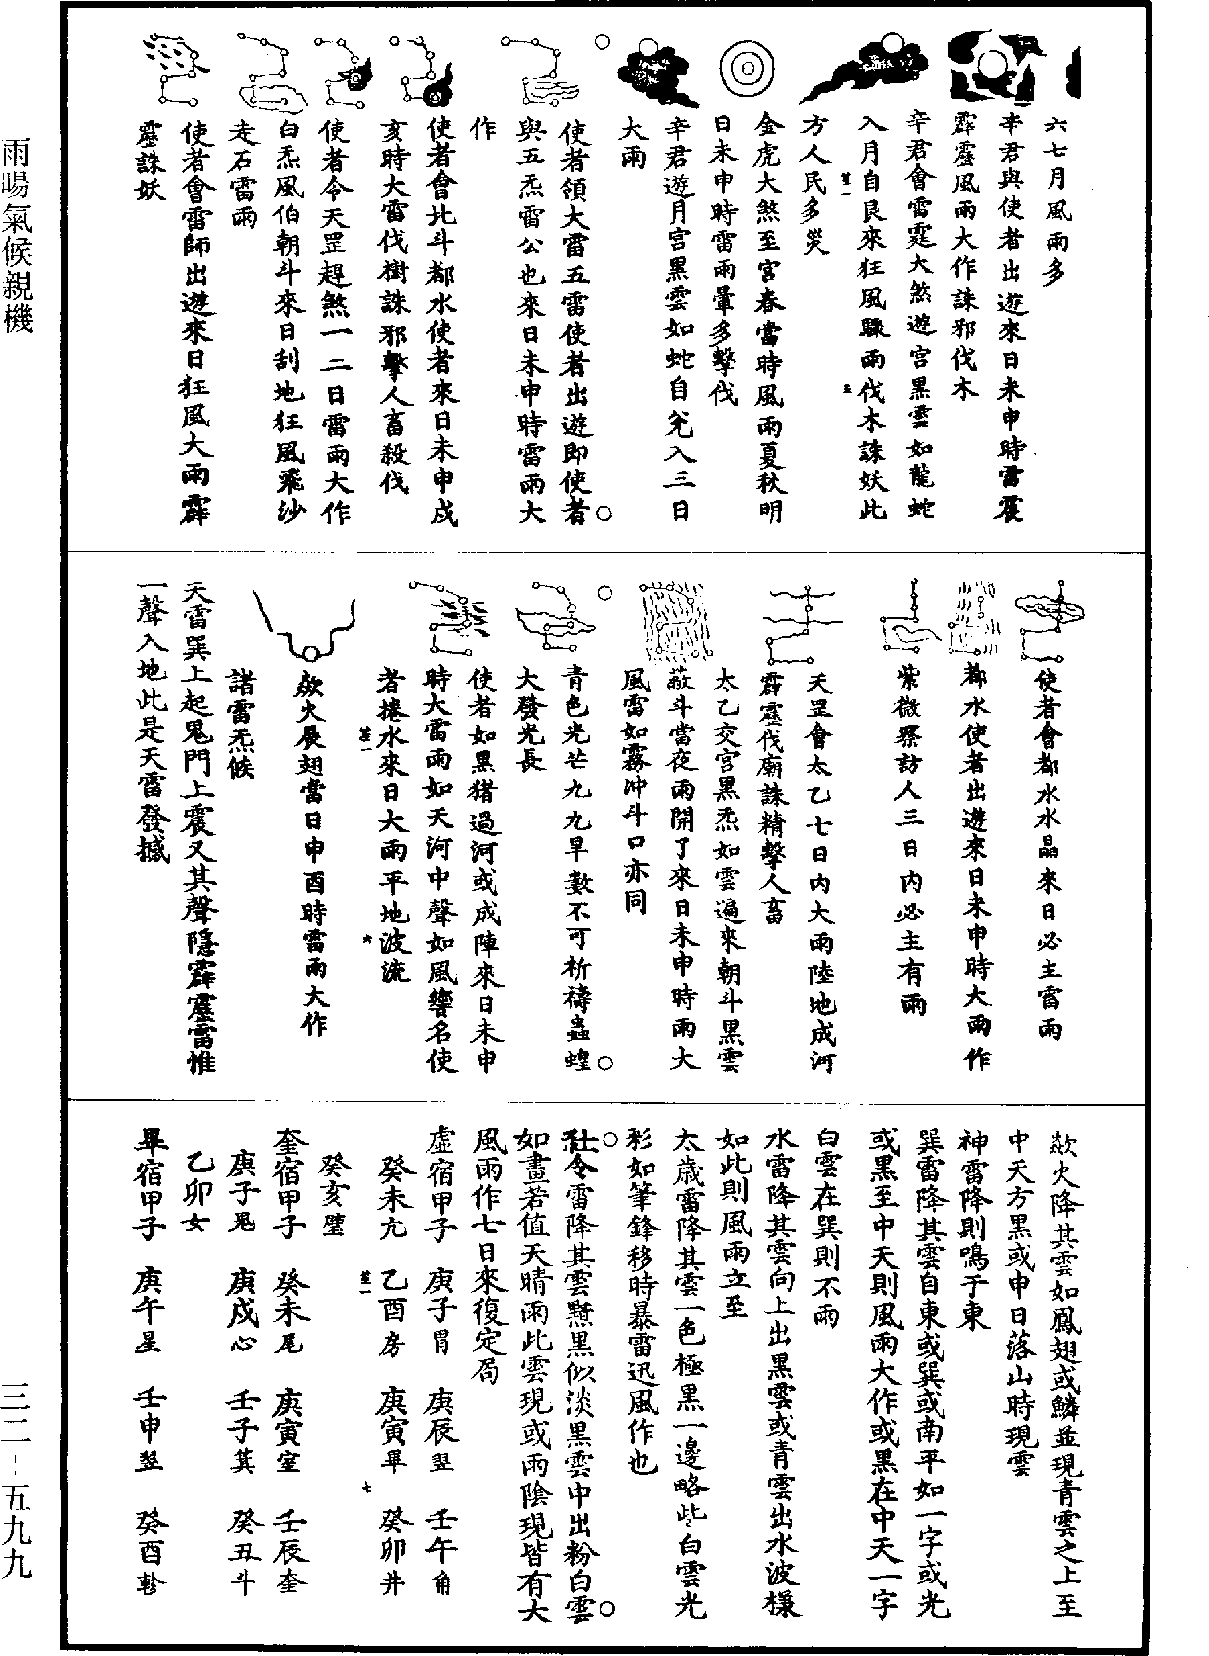 雨暘氣候親機
三二－五九九
六七月風雨多
辛君與使者出遊來日未申時雷震
霹靂風雨大作誅邪伐木
辛君會雷霆大煞遊宮黑雲如龍蛇
入月自艮來狂風驟雨伐木誅妖此
方人民多災
金虎大煞至宮春當時風雨夏秋明
日未申時雷雨暈多擊伐
辛君遊月宮黑雲如蛇自兊入三日
大雨
使者領大雷五雷使者出遊即使者
與五炁雷公也來日未申時雷雨大
作
使者會北斗都水使者來日未申戌
亥時大雷伐樹誅邪擊人畜殺伐
使者今天罡趕煞一二日雷雨大作
白炁風伯朝斗來日刮地狂風飛沙
走石雷雨
使者會雷師出遊來日狂風大雨霹
靂誅妖
使者會都水水晶來日必主雷雨
都水使者出遊來日未申時大雨作
紫微察訪人三日內必主有雨
天罡會太乙七日內大雨陸地成河
霹靂伐廟誅精擊人畜
太乙交宮黑炁如雲遍來朝斗黑雲
蔽斗當夜雨開了來日未申時雨大
風雷如霧冲斗口亦同
青色光芒九九旱數不可祈禱蟲蝗
大發光長
使者如黑猪過河或成陣來日未申
時大雷雨如天河中聲如風響名使
者捲水來日大雨平地波流
歘火展翅當日申酉時雷雨大作
諸雷炁候
天雷巽上起鬼門上震又其聲隱霹靂雷惟
一聲入地此是天雷發撼
歘火降其雲如鳳翅或鱗並現青雲之上至
中天方黑或申日落山時現雲
神雷降則鳴于東
巽雷降其雲自東或巽或南平如一字或光
或黑至中天則風雨大作或黑在中天一字
白雲在巽則不雨
水雷降其雲向上出黑雲或青雲出水波樣
如此則風雨立至
太歲雷降其雲一色極黑一邊略些白雲光
彩如筆鋒移時暴雷迅風作也
社令雷降其雲黑似淡黑雲中出粉白雲
如畫若值天晴雨此雲現或雨陰現皆有大
風雨作七日來復定局
虛宿甲子　庚子胃　庚辰翌　壬午角
癸未亢　乙酉房　庚寅畢　癸卯井
癸亥璧
奎宿甲子　癸未尾　庚寅室　壬辰奎
庚子鬼　庚戌心　壬子箕　癸丑斗
乙卯女
畢宿甲子　庚午星　壬申翌　癸酉軫